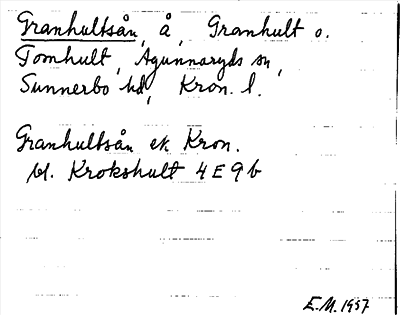 Granhultsån, å, Granhult o.
Tomhult, Agunnaryds sn,
Sunnerbo hd, Kron. l.
Granhultsån ek Kron.
bl. Krokshult 4E9b
E.M. 1957